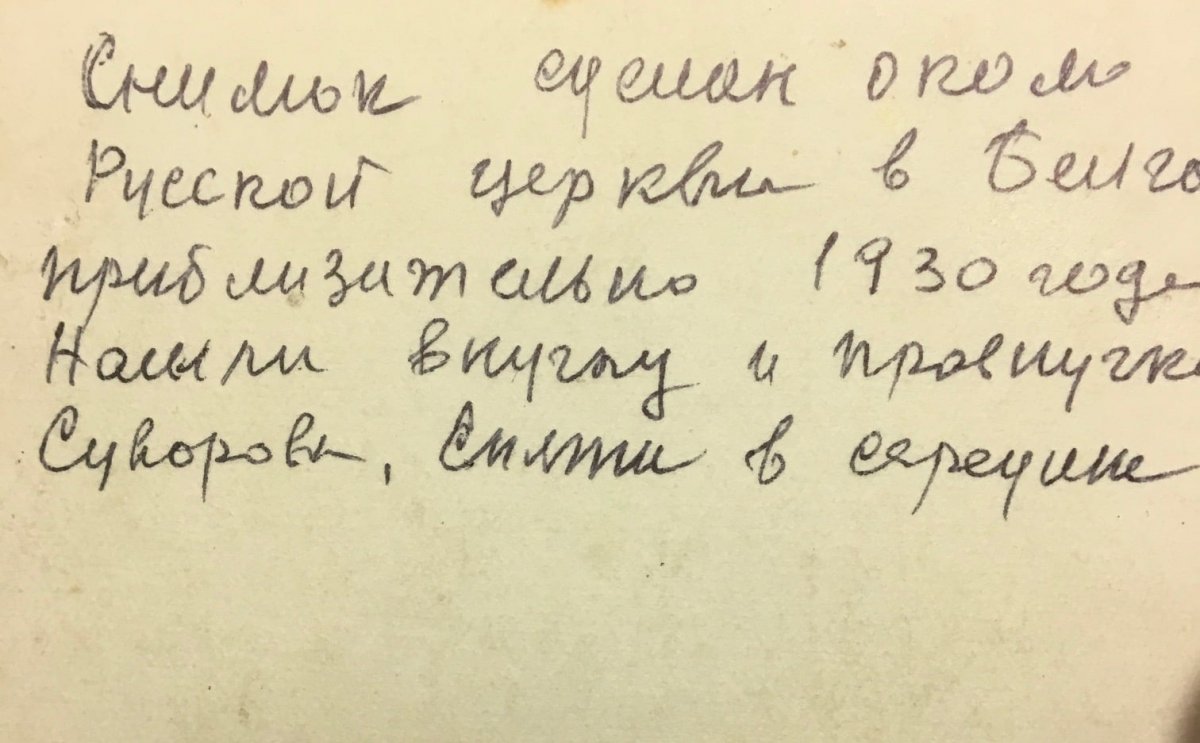 Снимок сделан около
Русской церкви в Белгр
приблизительно 1930 года
Нашли внучку и правнучк
Суворова, Сняты в середине